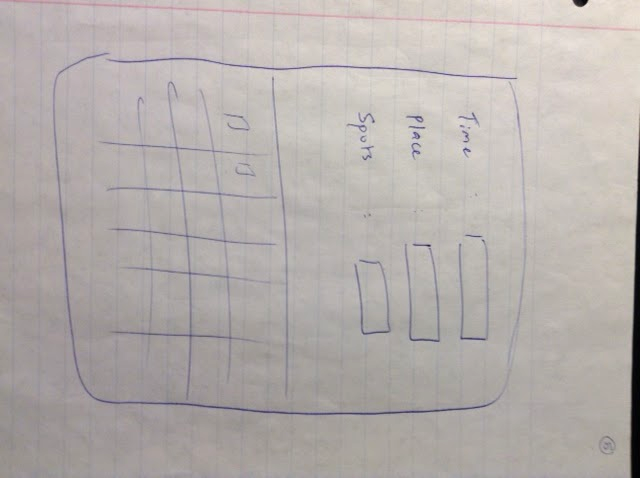 Time :
Place :
Spots :